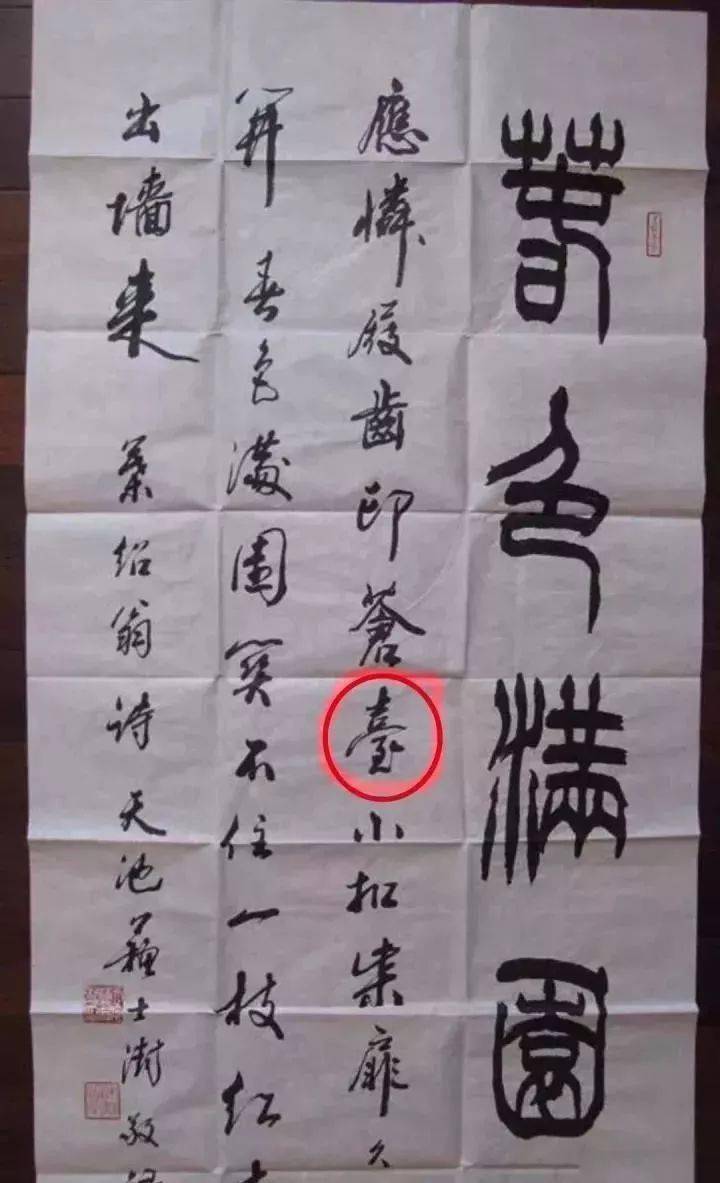 春色滿園
應憐屐齒印蒼臺小扣柴扉久
開春色滿園關不住一枝紅
出墻來 葉紹翁詩 天池蘇士澍敬